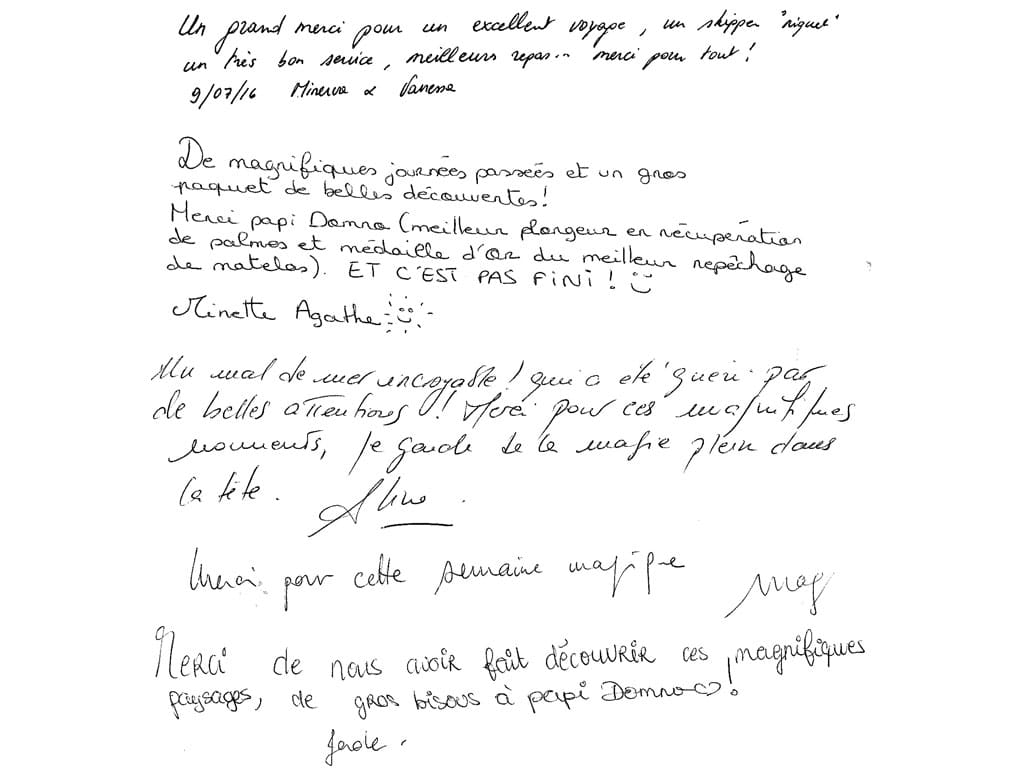 Un grand merci pour un excellent voyage, un skipper "niquel"
un très bon service, meilleurs repas... merci pour tout!
9/07/16 Minerva & Vanessa
De magnifiques journées passées et un gros
paquet de belles découvertes!
Merci papi Domno (meilleur plongeur en récupération
de palmes et médaille d'or du meilleur repêchage
de matelas). ET C'EST PAS FINI!
Minette Agathe
Un mal de mer incroyable! qui a été guéri par
de belles attentions! Merci pour ces magnifiques
moments, je garde de la magie plein dans
la tête. Aline.
Merci pour cette semaine magique
Mag
Merci de nous avoir fait découvrir ces magnifiques
paysages, de gros bisous à papi Domno!